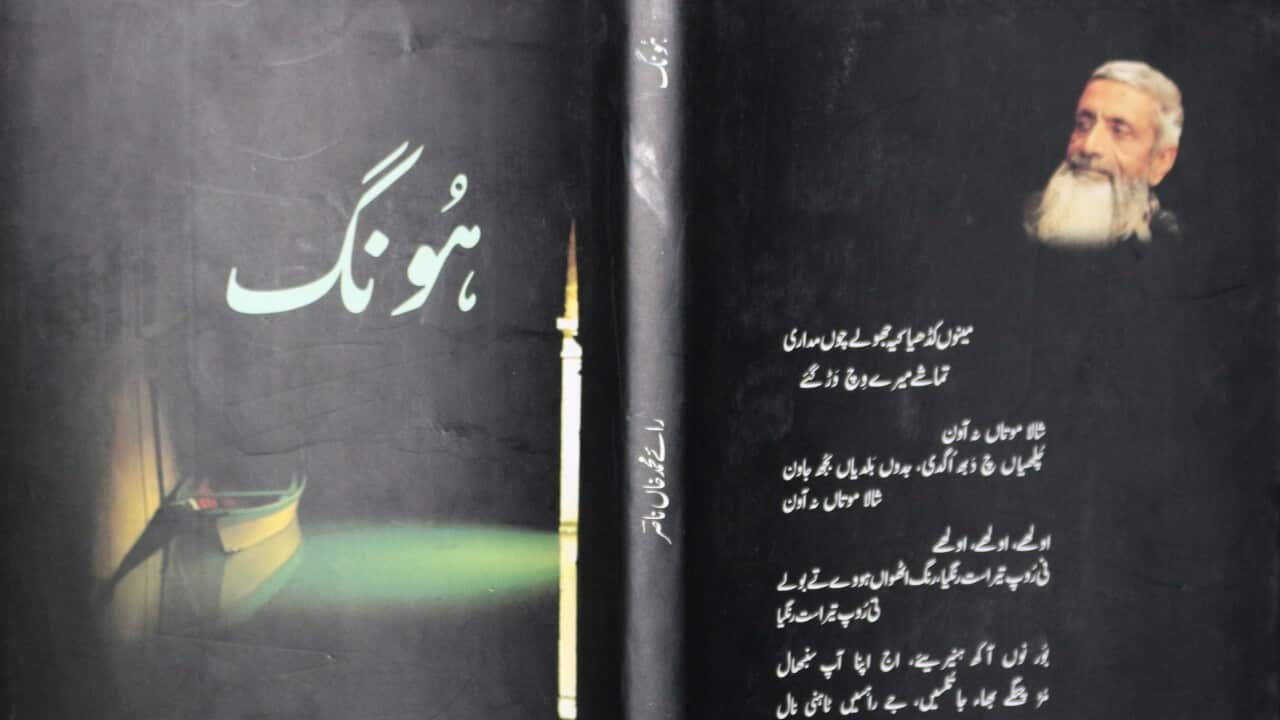 ہُونگ
ہُونگ
رائے محمد خاں ناصر
مینوں کڈھیا سیہ جھولے چوں مداری
تماشے میرے وِچ وَڑ گئے
شالا موتاں نہ آون
چُلھیاں چ دَبھ اُگدی، جدوں بَلدیاں بُجھ جاون
شالا موتاں نہ آون
اولھے، اولھے، اولھے
نی رُوپ تیرا ست رنگیا، رنگ اٹھواں ہووے تے بولے
نی رُوپ تیرا ست رنگیا
بُور نوں آکھ ہنیریئے، اج اپنا آپ سنبھال